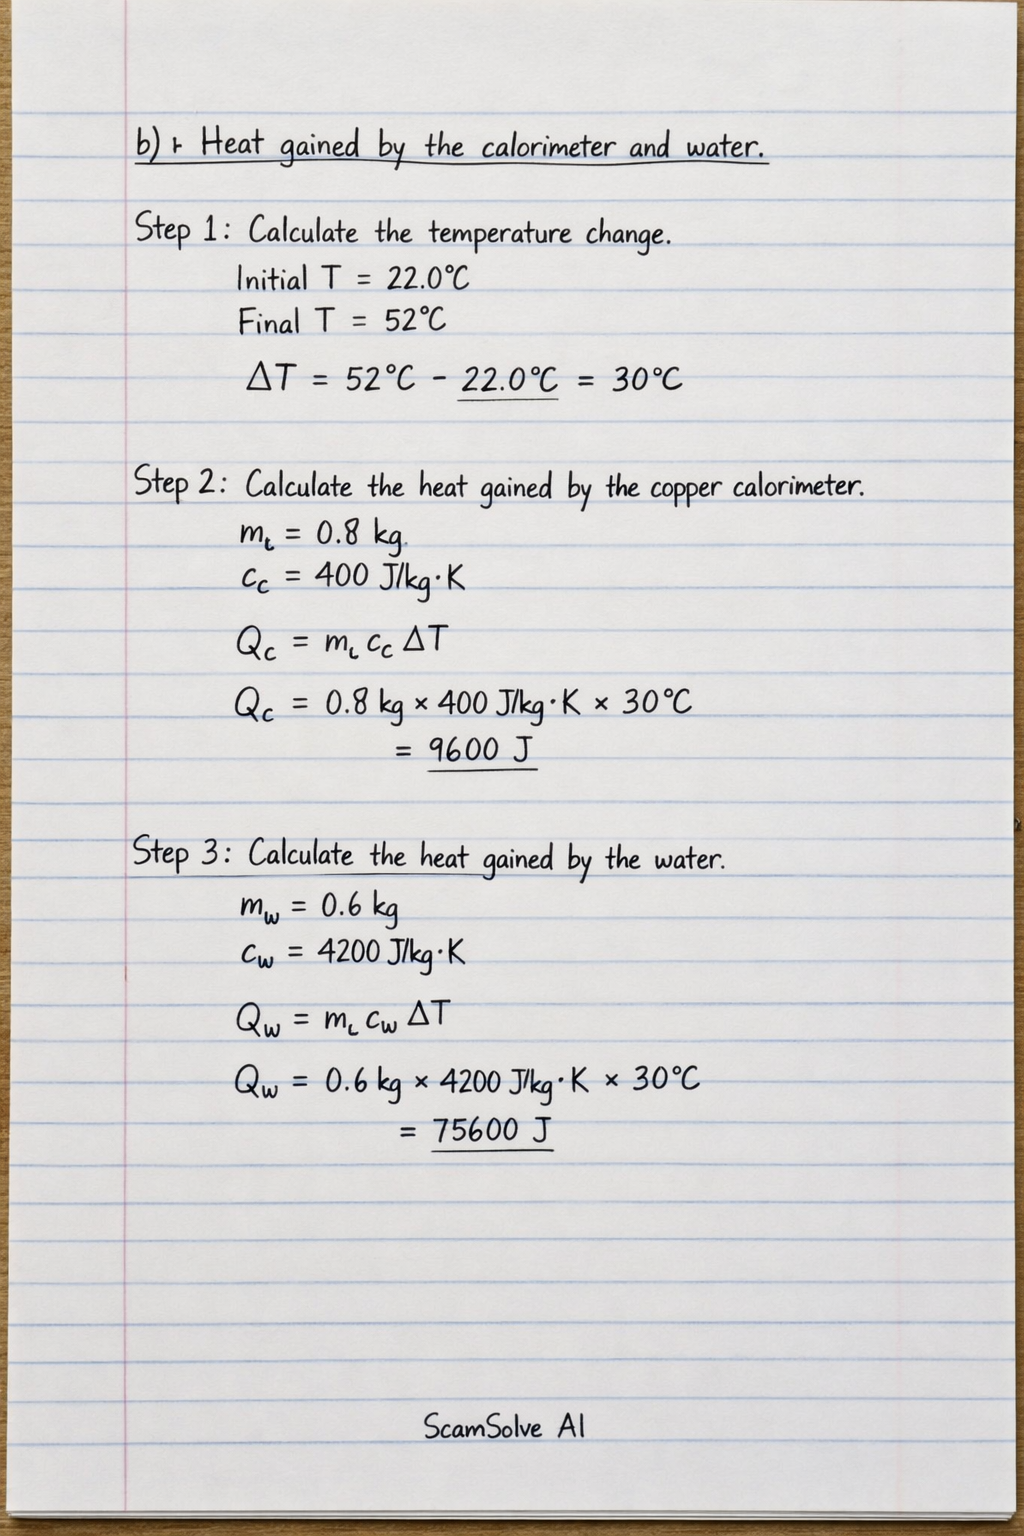 b) ⊦ Heat gained by the calorimeter and water.
Step 1: Calculate the temperature change.
Initial T = 22.0°C
Final T = 52°C
ΔT = 52°C - 22.0°C = 30°C
Step 2: Calculate the heat gained by the copper calorimeter.
mₜ = 0.8 kg.
c_c = 400 J/kg·K
Q_c = m_ʟ c_c ΔT
Q_c = 0.8 kg × 400 J/kg·K × 30°C
= 9600 J
Step 3: Calculate the heat gained by the water.
m_w = 0.6 kg
c_w = 4200 J/kg·K
Q_w = m_ʟ c_w ΔT
Q_w = 0.6 kg × 4200 J/kg·K × 30°C
= 75600 J
ScamSolve AI